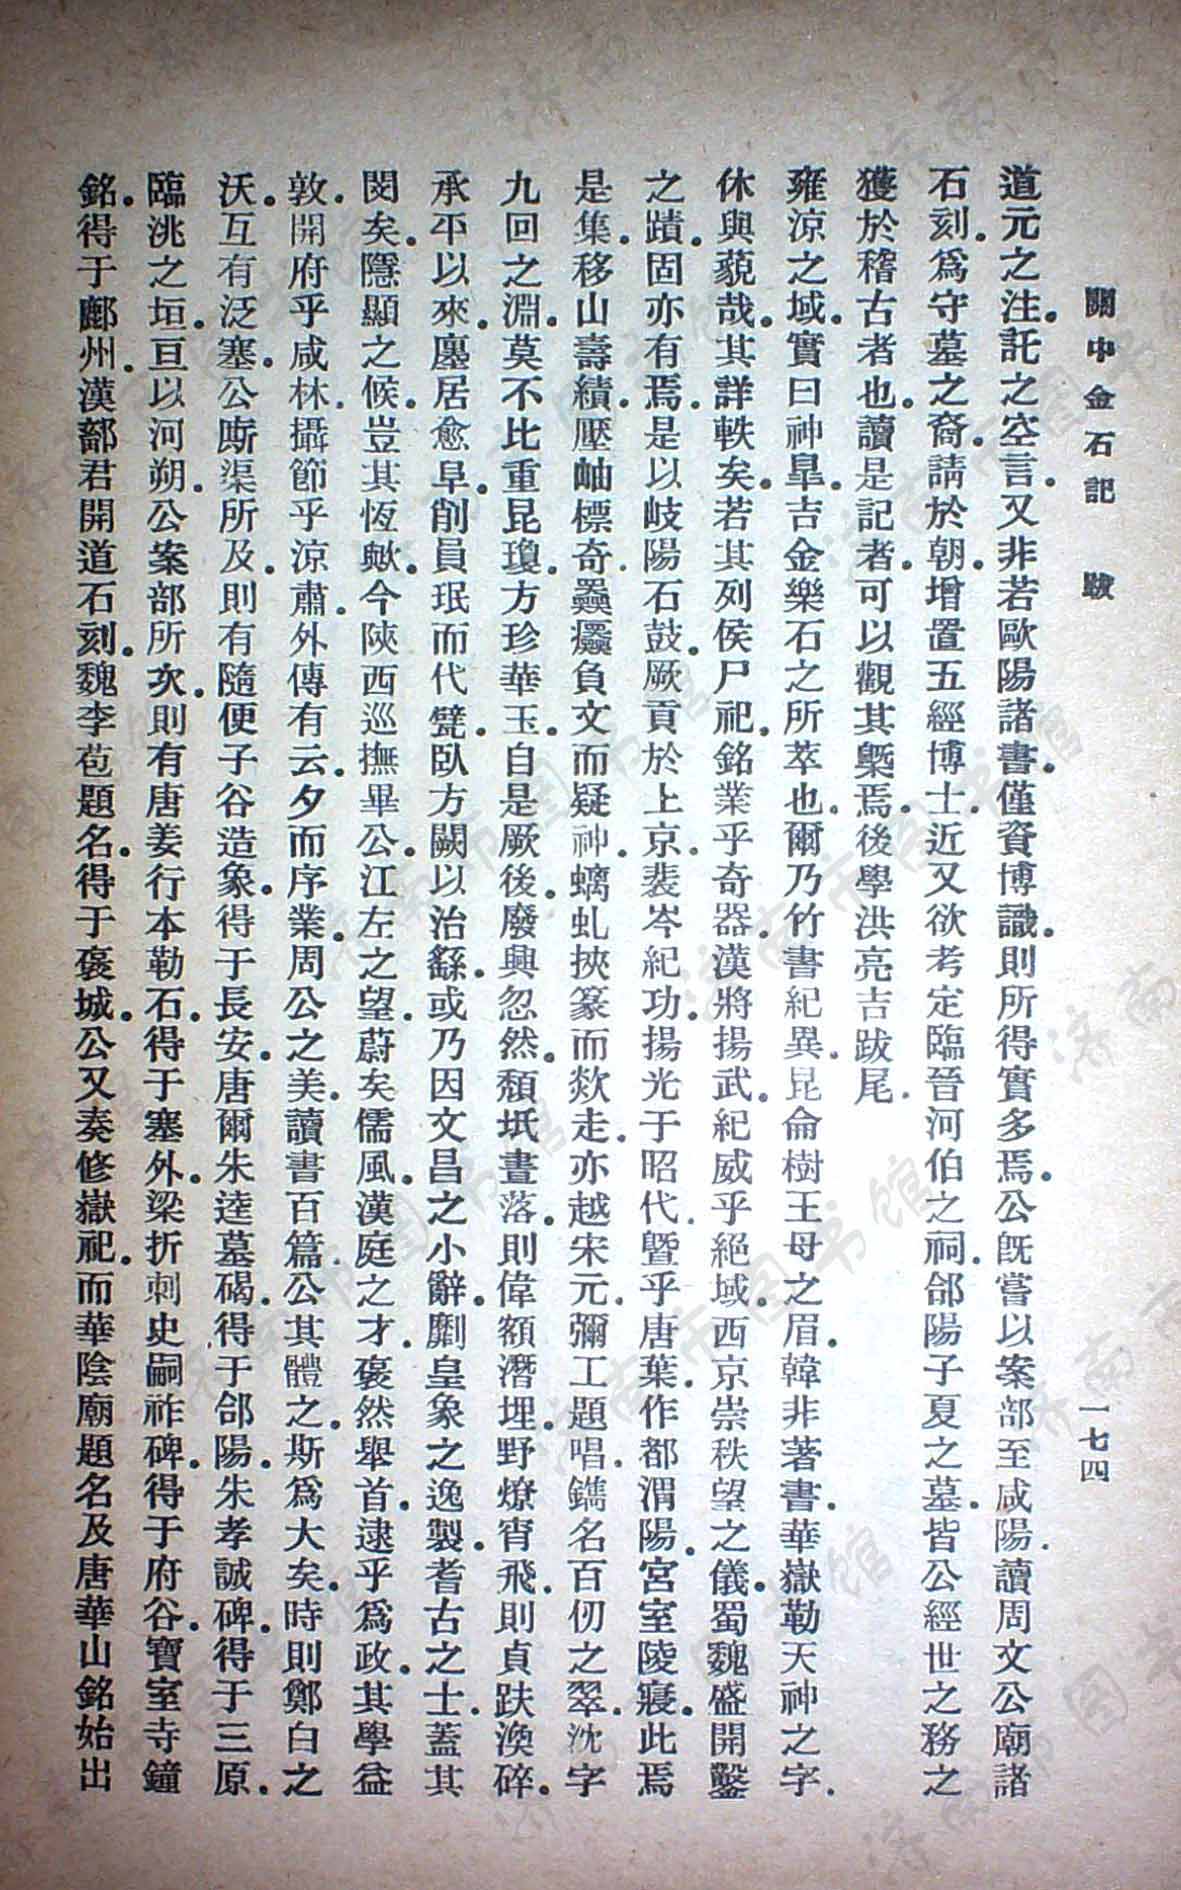 關中金石記　跋　一七四
道元之注。託之空言。又非若歐陽諸書。僅資博識。則所得實多焉。公旣嘗以案部至咸陽。讀周文公廟諸
石刻。爲守墓之裔。請於朝。增置五經博士。近又欲考定臨晉河伯之祠。郃陽子夏之墓。皆公經世之務之
獲於稽古者也。讀是記者。可以觀其槩焉。後學洪亮吉跋尾。
雍涼之域。實曰神臯。吉金樂石之所萃也。爾乃竹書紀異。昆侖樹王母之眉。韓非著書。華嶽勒天神之字。
休與藐哉。其詳軼矣。若其列侯尸祀。銘業乎奇器。漢將揚武。紀威乎絕域。西京崇秩望之儀。蜀魏盛開鑿
之蹟。固亦有焉。是以岐陽石鼓。厥貢於上京。裴岑紀功。揚光于昭代。曁乎唐葉。作都渭陽。宮室陵寢。此焉
是集。移山壽績。壓岫標奇。蠹贔負文而疑神。螭虬挾篆而欻走。亦越宋元。彌工題唱。鐫名百仞之翠。沈字
九回之淵。莫不比重昆瓊。方珍華玉。自是厥後。廢興忽然。頹坻晝落。則偉額潛埋。野燎宵飛。則貞趺渙碎。
承平以來。廛居愈阜。削員珉而代甓。臥方闕以治繇。或乃因文昌之小辭。劘皇象之逸製。耆古之士。蓋其
閔矣。隱顯之候。豈其恆歟。今陝西巡撫畢公。江左之望。蔚矣儒風。漢庭之才。褎然舉首。逮乎爲政。其學益
敦。開府乎咸林。攝節乎涼肅。外傳有云。夕而序業。周公之美。讀書百篇。公其體之。斯爲大矣。時則鄭白之
沃。互有泛塞。公斯渠所及。則有隨便子谷造象。得于長安。唐爾朱逵墓碣。得于郃陽。朱孝誠碑。得于三原。
臨洮之垣。亘以河朔。公案部所次。則有唐姜行本勒石。得于塞外。梁折刺史嗣祚碑。得于府谷。寶室寺鐘
銘。得于鄜州。漢鄐君開道石刻。魏李苞題名。得于褒城。公又奏修嶽祀。而華陰廟題名及唐華山銘始出